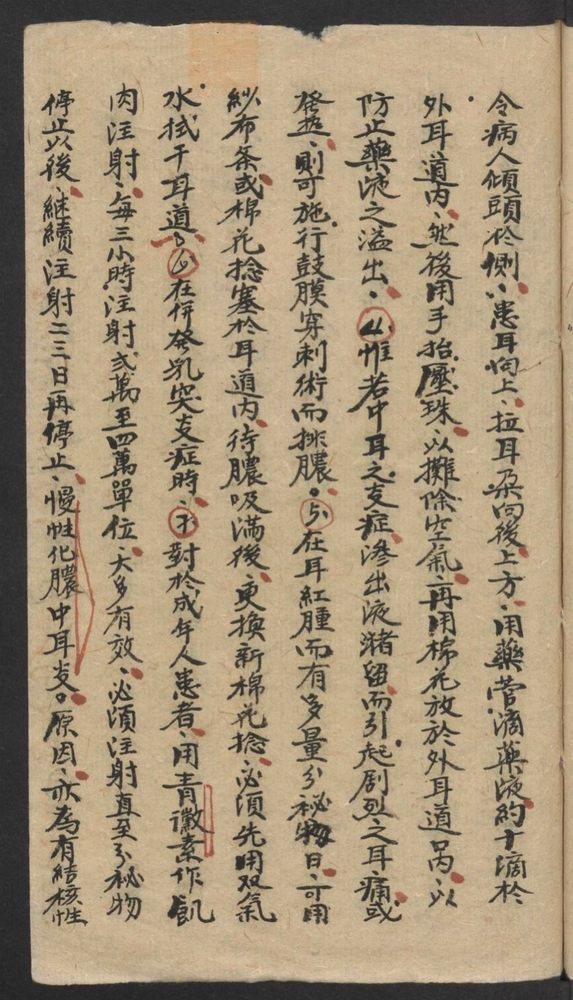 令病人傾頭於側、患耳向上、拉耳朶向後上方、用藥管滴藥液約十滴於
外耳道内、然後用手抬壓珠、以攤除空氣、再用棉花放於外耳道口内、以
防止藥液之溢出、4、惟若中耳之支症滲出液潴留而引起剧烈之耳痛或
發热、則可施行鼓膜穿刺術而排膿。5、在耳紅腫而有多量分秘物日、可用
紗布条或棉花捻塞於耳道内、待膿吸滿後、更換新棉花捻、必須先用双氧
水拭干耳道、6、在併發乳突支症時、7、對於成年人患者、用青黴素作飢
肉注射、每三小時注射弍萬至四萬單位、大多有效、必須注射直至分秘物
停止以後、継續注射二三日再停止、慢性化膿中耳炎。原因、亦為有結核性